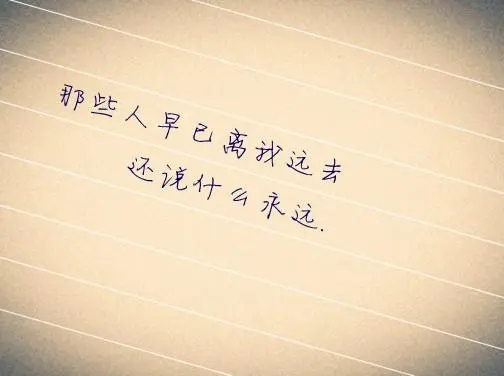 那些人早已离我远去
还说什么永远.